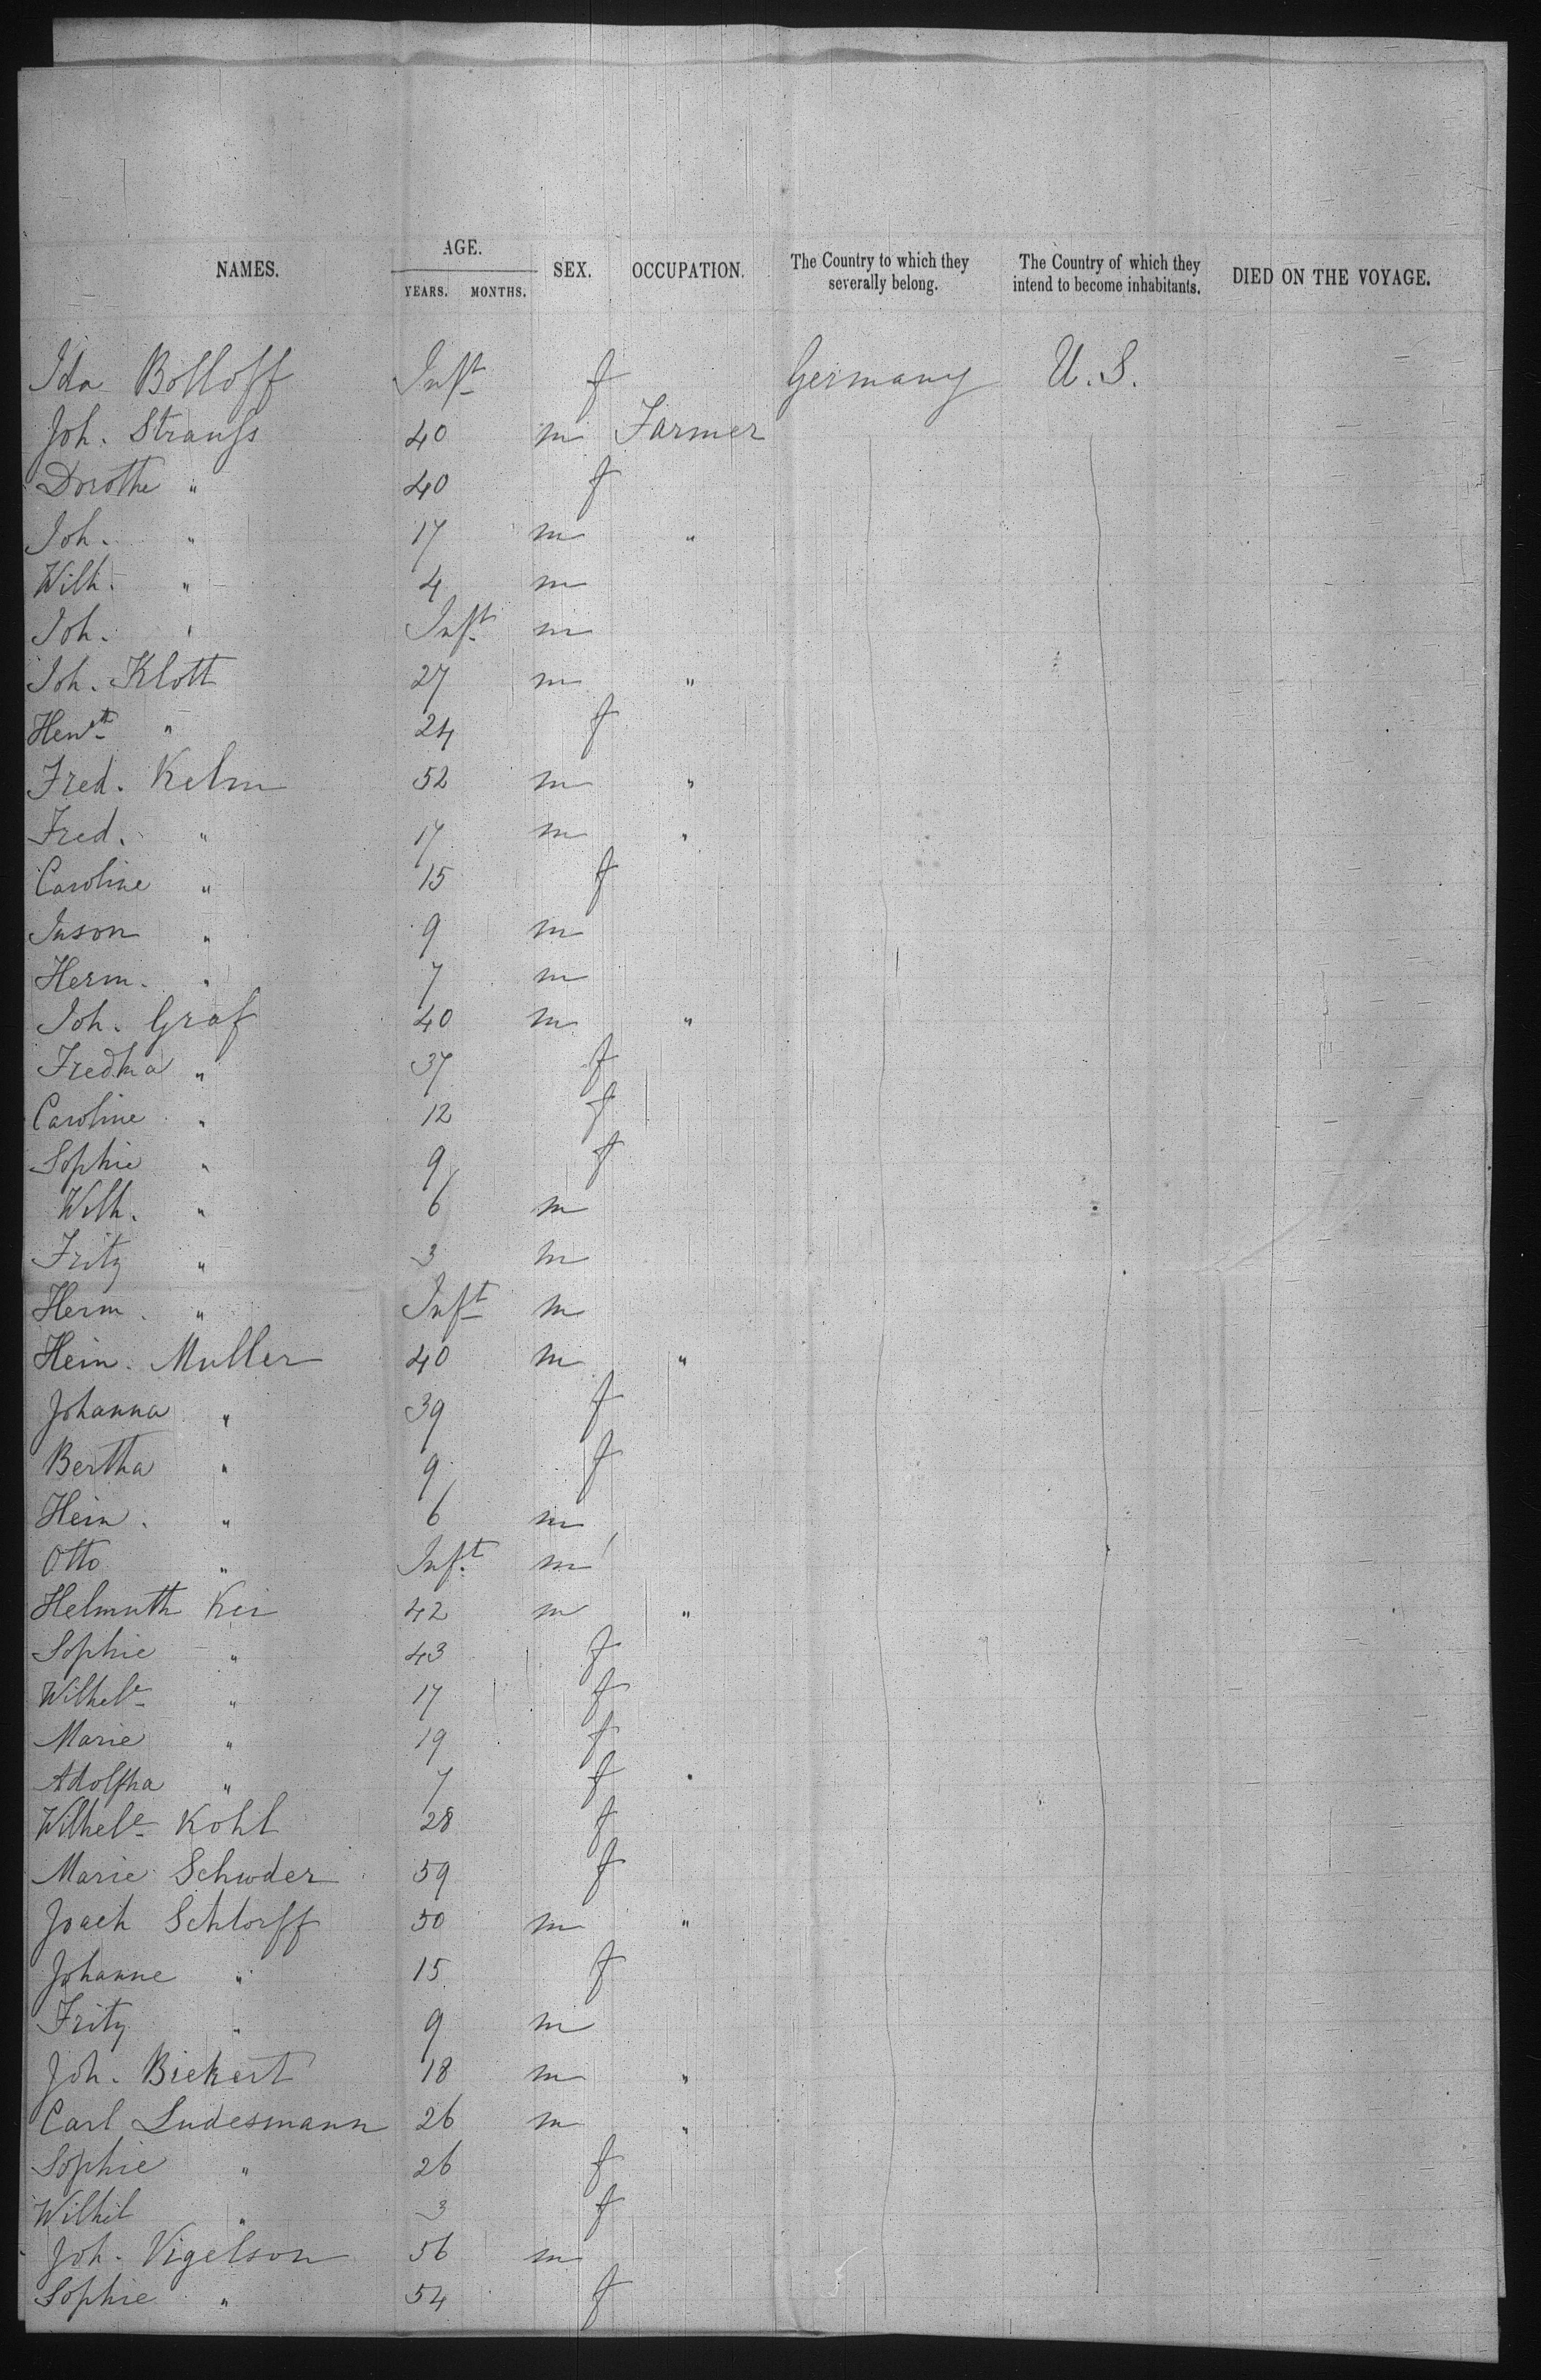 NAMES. AGE. YEARS. MONTHS. SEX. OCCUPATION. The Country to which they severally belong. The Country of which they intend to become inhabitants. DIED ON THE VOYAGE.
Ida Bolloff Inft f Germany U.S.
Joh. Strauss 40 m Farmer
Dorothe " 40 f
Joh. " 17 m "
Wilh. " 4 m
Joh. " Inft m
Joh. Klott 27 m "
Hent " 24 f
Fred. Kelm 52 m "
Fred. " 17 m "
Caroline " 15 f
Juson " 9 m
Herm. " 7 m
Joh. Graf 40 m "
Fredka " 37 f
Caroline " 12 f
Sophie " 9 f
Wilh. " 6 m
Fritz " 3 m
Herm. " Inft m
Hein. Muller 40 m "
Johanna " 39 f
Bertha " 9 f
Hein. " 6 m
Otto " Inft m
Helmuth Kei 42 m "
Sophie " 43 f
Wilhele " 17 f
Marie " 19 f
Adolpha " 7 f
Wilhele Kohl 28 f
Marie Schroder 59 f
Joach Schlorff 50 m "
Johanne " 15 f
Fritz " 9 m
Joh. Biekert 18 m "
Carl Ludesmann 26 m "
Sophie " 26 f
Wilhel " 3 f
Joh. Vigelson 56 m
Sophie " 54 f